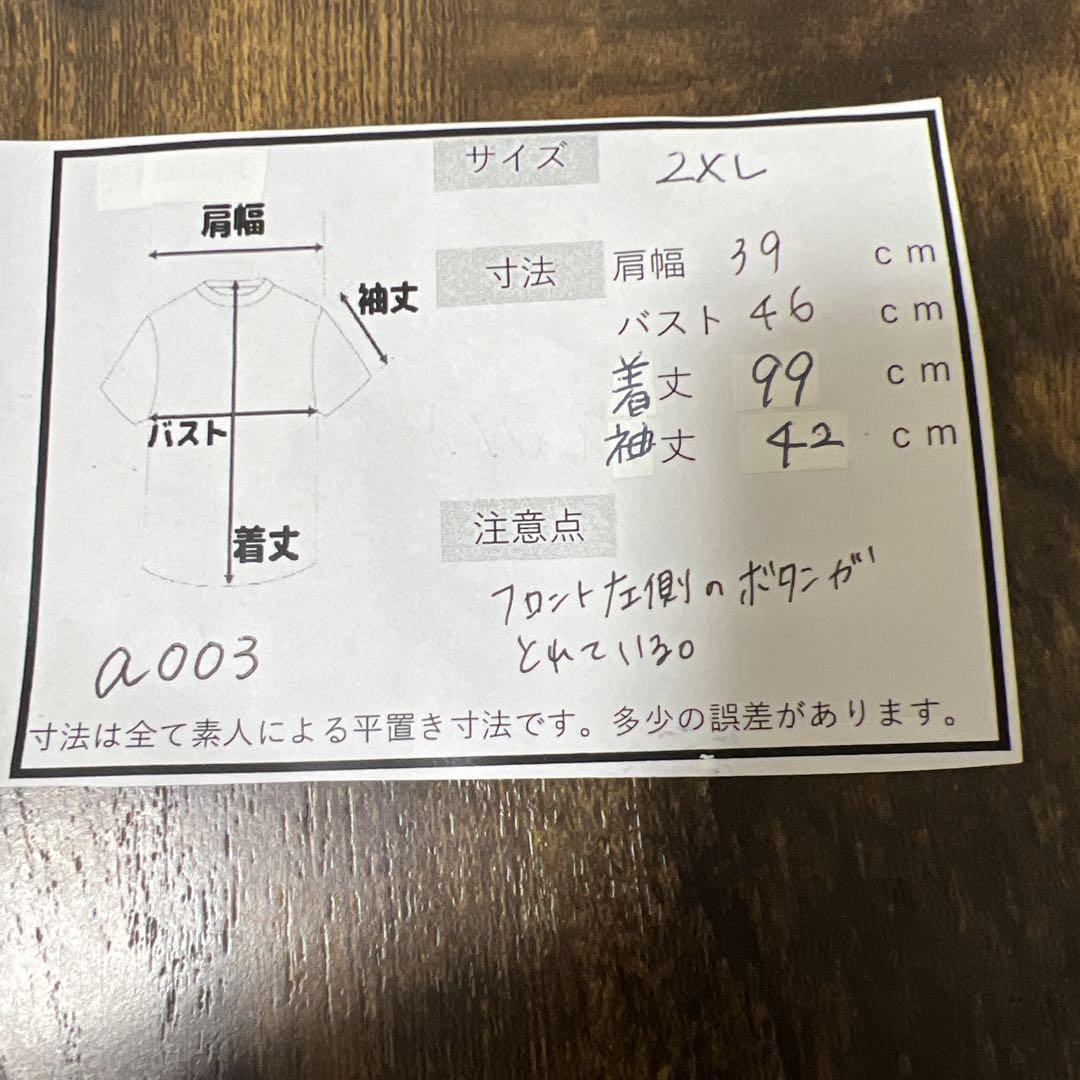 サイズ 2XL
肩幅
袖丈
バスト
着丈
寸法 肩幅 39 cm
バスト 46 cm
着丈 99 cm
袖丈 42 cm
注意点
フロント左側のボタンが
とれている。
a003
寸法は全て素人による平置き寸法です。多少の誤差があります。